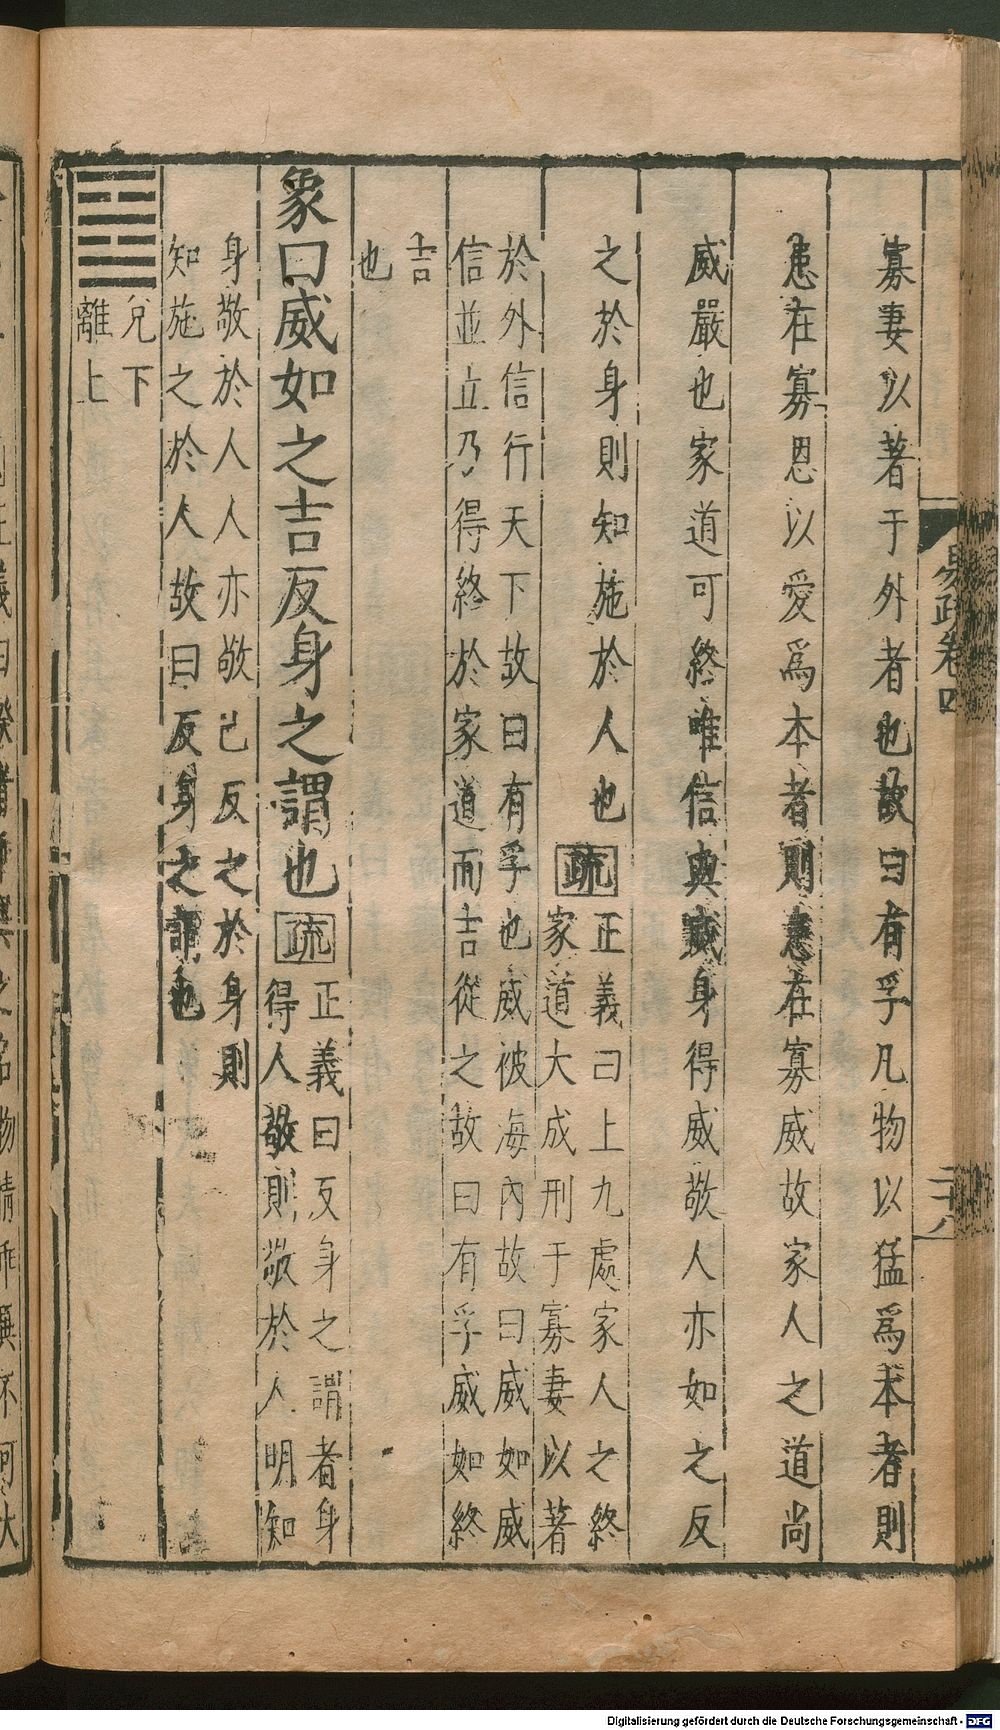 寡妻以著于外者也故曰有孚凡物以猛爲本者則
患在寡恩以愛爲本者則患在寡威故家人之道尚
威嚴也家道可終唯信與威身得威敬人亦如之反
之於身則知施於人也疏
正義曰上九處家人之終
家道大成刑于寡妻以著
於外信行天下故曰有孚也威被海內故曰威如威
信並立乃得終於家道而吉從之故曰有孚威如終
吉
也
象曰威如之吉反身之謂也疏
正義曰反身之謂者身
得人敬則敬於人明知
身敬於人人亦敬己反之於身則
知施之於人故曰反身之謂也
兌下
離上
易疏卷四
二十八
Digitalisierung gefördert durch die Deutsche Forschungsgemeinschaft - DFG